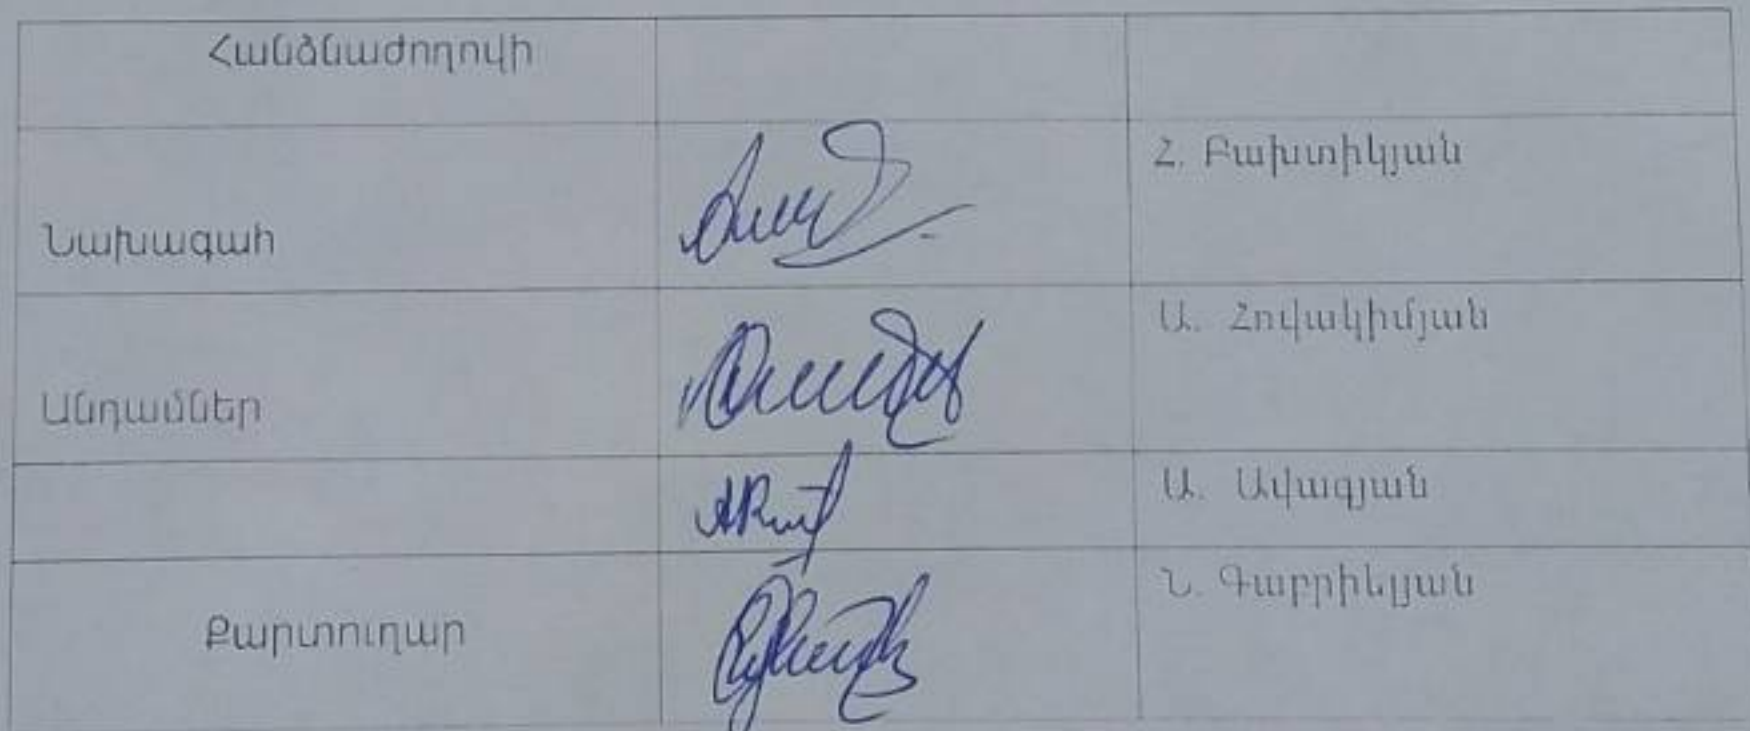 Հանձնաժողովի
Նախագահ Հ. Բախտիկյան
Անդամներ Ա. Հովակիմյան
Ա. Ավագյան
Քարտուղար Ն. Գաբրիելյան